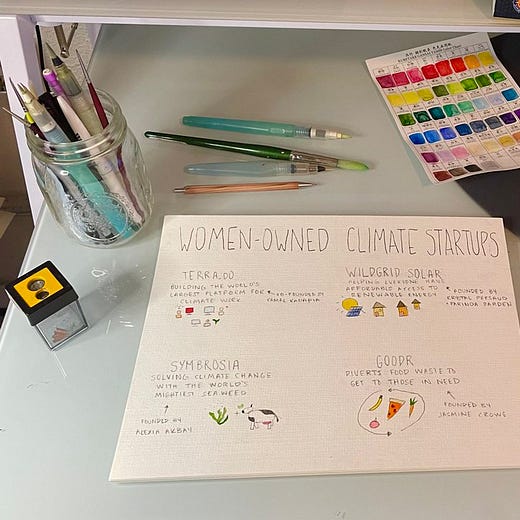 WOMEN-OWNED CLIMATE STARTUPS
TERRA.DO
BUILDING THE WORLD'S
LARGEST PLATFORM FOR
CLIMATE WORK
CO-FOUNDED BY
KAMAL KAPADIA
WILDGRID SOLAR
HELPING EVERYONE HAVE
AFFORDABLE ACCESS TO
RENEWABLE ENERGY
FOUNDED BY
KRYSTAL PERSAUD
SYMBROSIA
SOLVING CLIMATE CHANGE
WITH THE WORLD'S
MIGHTIEST SEAWEED
FOUNDED BY
ALEXIA AKBAY
GOODR
DIVERTS FOOD WASTE TO
GET TO THOSE IN NEED
FOUNDED BY
JASMINE CROWE